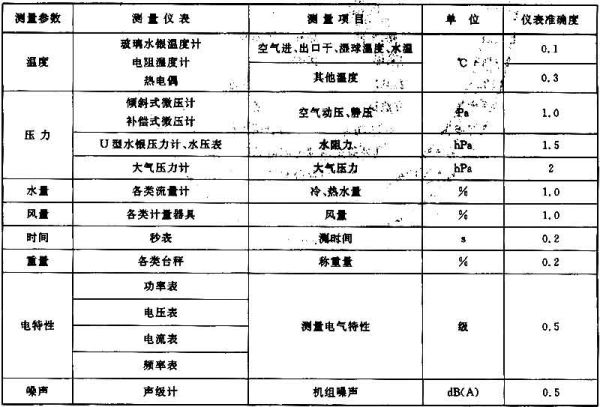 测量参数 测量仪表 测量项目 单位 仪表准确度
温度 玻璃水银温度计 空气进、出口干、湿球温度、水温 ℃ 0.1
电阻温度计
热电偶 其他温度 0.3
压力 倾斜式微压计 空气动压、静压 Pa 1.0
补偿式微压计
U型水银压力计、水压表 水阻力 hPa 1.5
大气压力计 大气压力 hPa 2
水量 各类流量计 冷、热水量 % 1.0
风量 各类计量器具 风量 % 1.0
时间 秒表 测时间 s 0.2
重量 各类台秤 称重量 % 0.2
电特性 功率表 测量电气特性 级 0.5
电压表
电流表
频率表
噪声 声级计 机组噪声 dB(A) 0.5